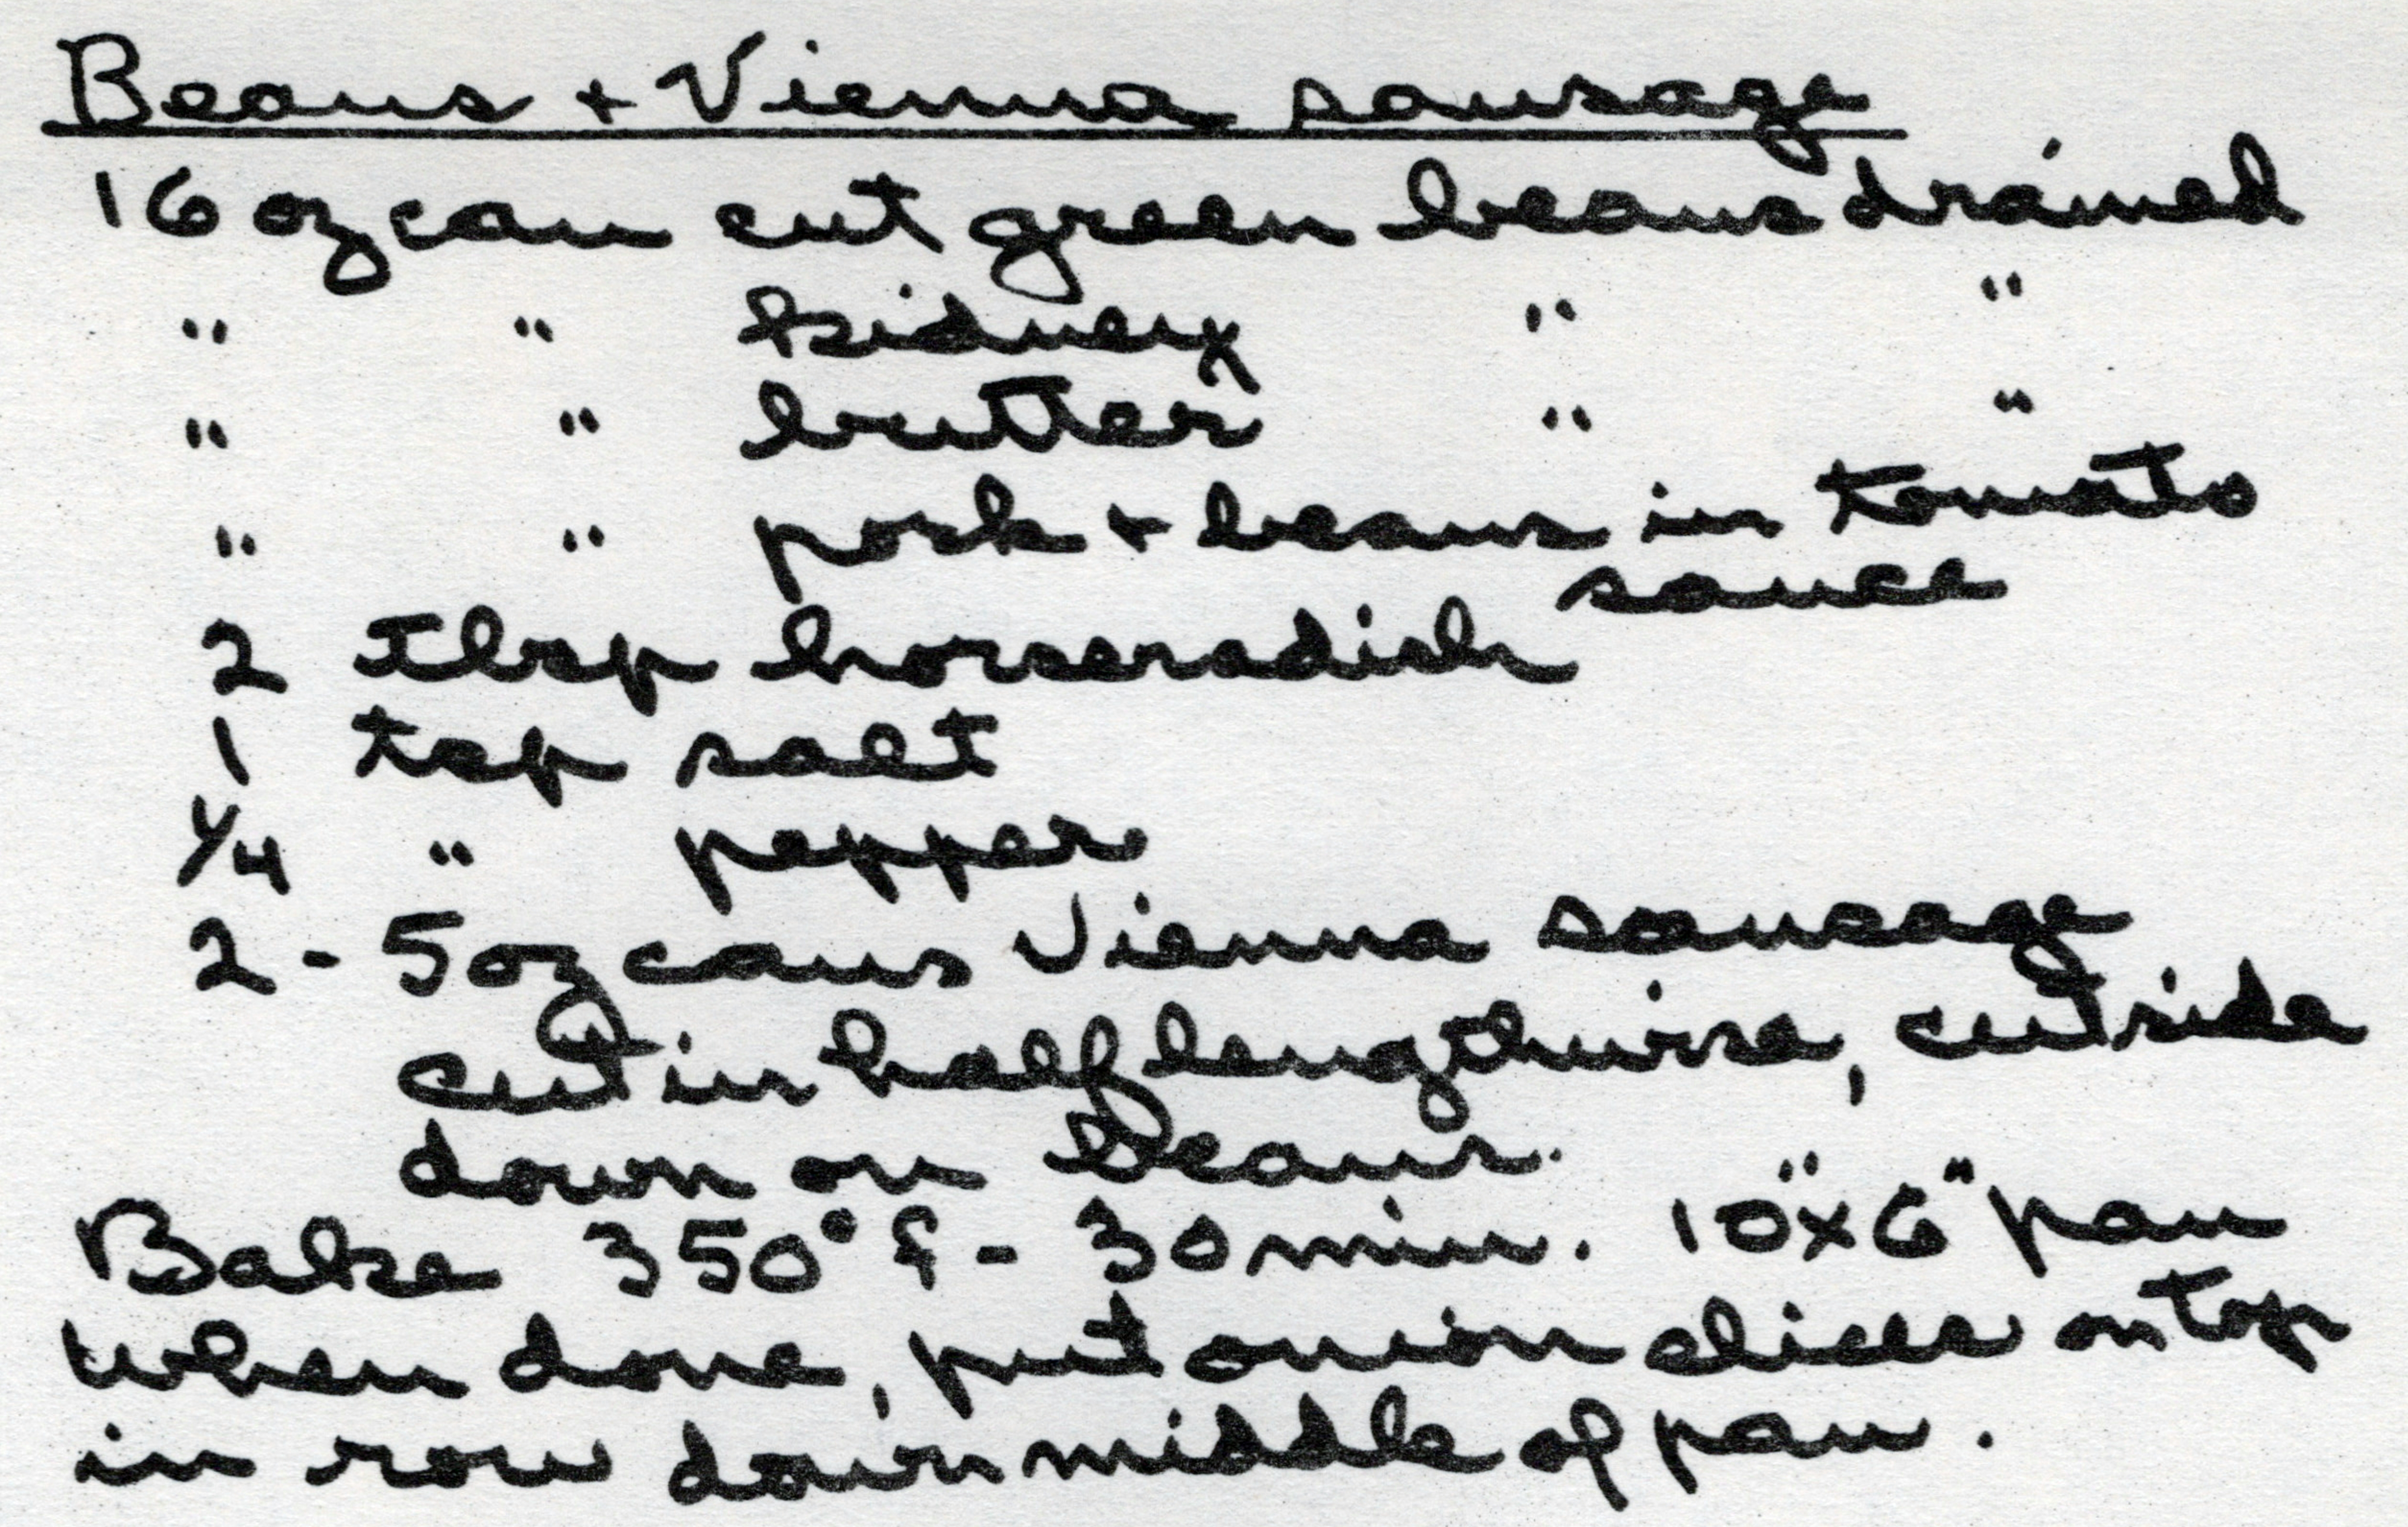 Beans + Vienna sausage
16 oz can cut green beans drained
" " kidney " "
" " butter " "
" " pork + beans in tomato
sauce
2 Tbsp horseradish
1 tsp salt
1/4 " pepper
2 - 5 oz cans Vienna sausage
cut in half lengthwise, cut side
down on beans.
Bake 350° f - 30 min. 10"x6" pan
When done, put onion slices on top
in row down middle of pan.